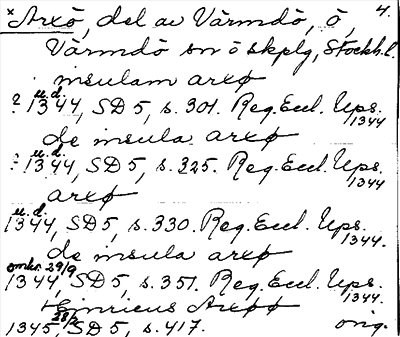 × Arxö, del av Värmdö, ö, 4.
Värmdö sn ö skplg, Stockh. l.
insulam arxø
? u.d. 1344, SD 5, s. 301. Reg. Eccl. Ups. 1344
de insula arxø
? u.d. 1344, SD 5, s. 325. Reg. Eccl. Ups. 1344
arxø
u.d. 1344, SD 5, s. 330. Reg. Eccl. Ups. 1344.
de insula arxø
omkr. 29/9 1344, SD 5, s. 351. Reg. Eccl. Ups. 1344.
Hinricus Arxøø
1345 28/2, SD 5, s. 417. orig.